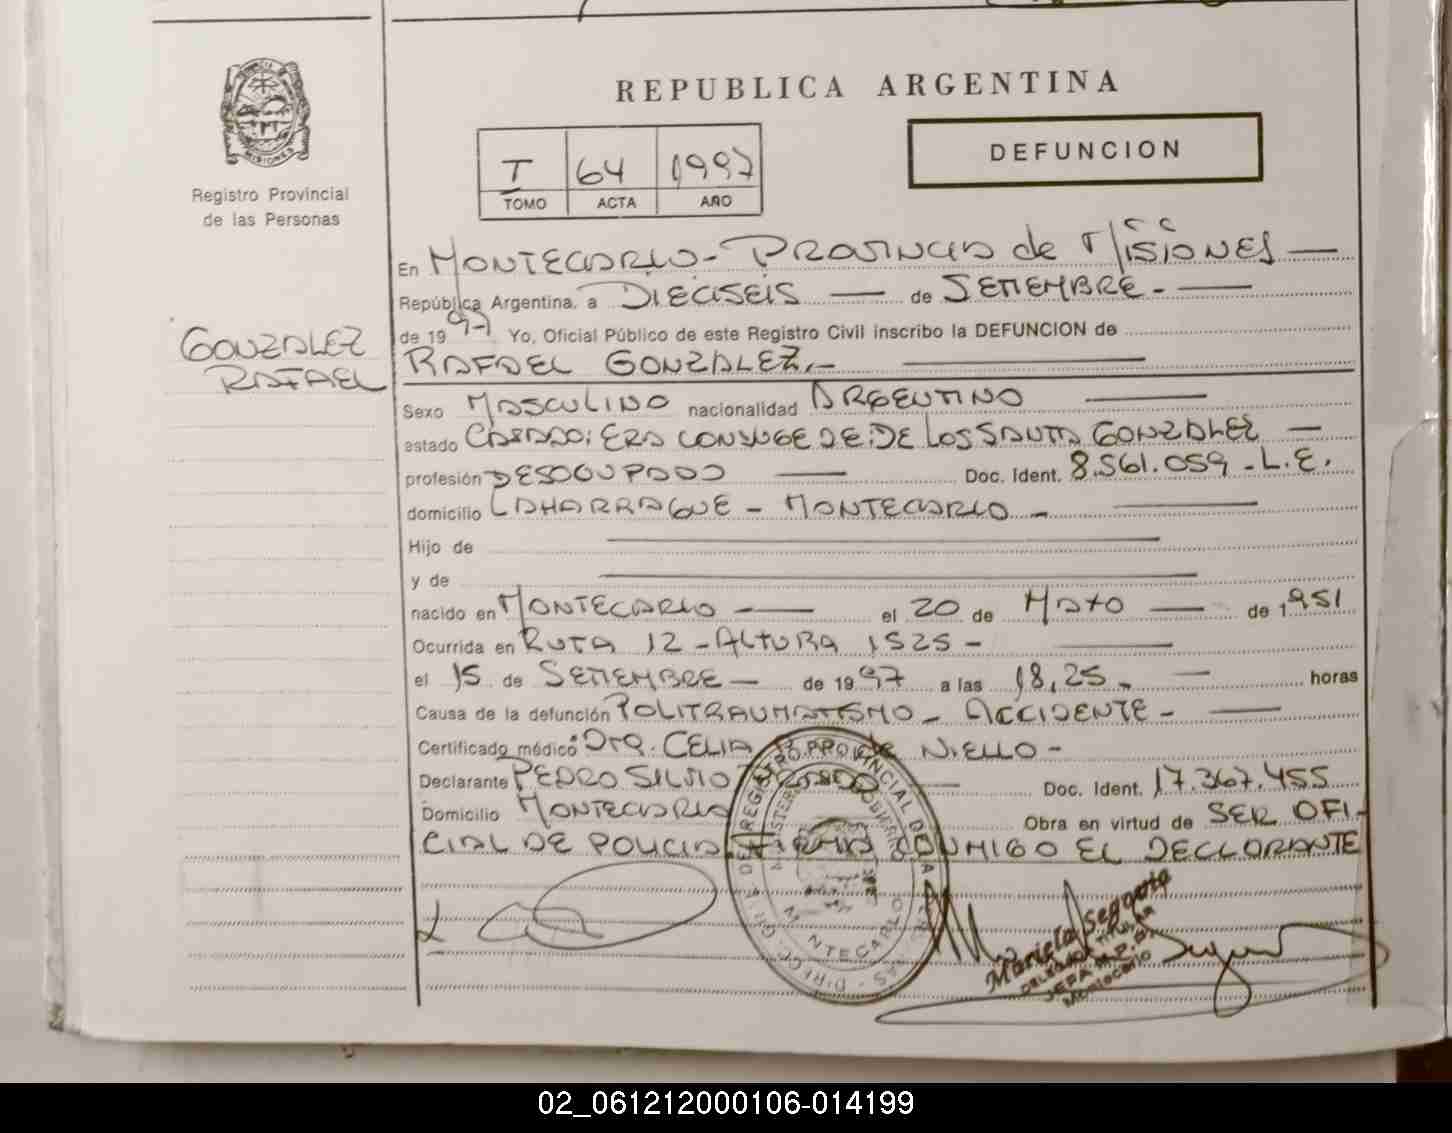 MISIONES
Registro Provincial
de las Personas
GONZALEZ
RAFAEL
REPUBLICA ARGENTINA
DEFUNCION
T 64 1997
TOMO ACTA AÑO
En MONTECARLO - PROVINCIA de MISIONES
República Argentina, a DIECISEIS de SETIEMBRE.
de 1997 Yo, Oficial Público de este Registro Civil inscribo la DEFUNCION de
RAFAEL GONZALEZ.
Sexo MASCULINO nacionalidad ARGENTINO
estado CASADO: ERA CONYUGE DE: DE LOS SANTA GONZALEZ
profesión DESOCUPADO Doc. Ident. 8.561.059 - L.E.
domicilio LAHARRAGUE - MONTECARLO -
Hijo de
y de
nacido en MONTECARLO el 20 de MAYO de 1951
Ocurrida en RUTA 12 - ALTURA 1525 -
el 15 de SETIEMBRE de 1997 a las 18,25 horas
Causa de la defunción POLITRAUMATISMO - ACCIDENTE -
Certificado médico: Dra. CELIA de NIELLO -
Declarante PEDRO SILVIO Doc. Ident. 17.367.455
Domicilio MONTECARLO Obra en virtud de SER OFI-
CIAL DE POLICIA FIRMA CONMIGO EL DECLORANTE
REGISTRO PROVINCIAL DE LAS PERSONAS
MONTECARLO
Mariela Segovia
DELEGADO TITULAR
Montecarlo
02_061212000106-014199